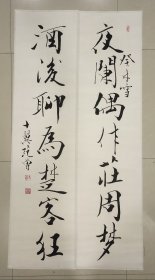 癸未雪
夜阑偶作莊周梦
酒後聊為楚客狂